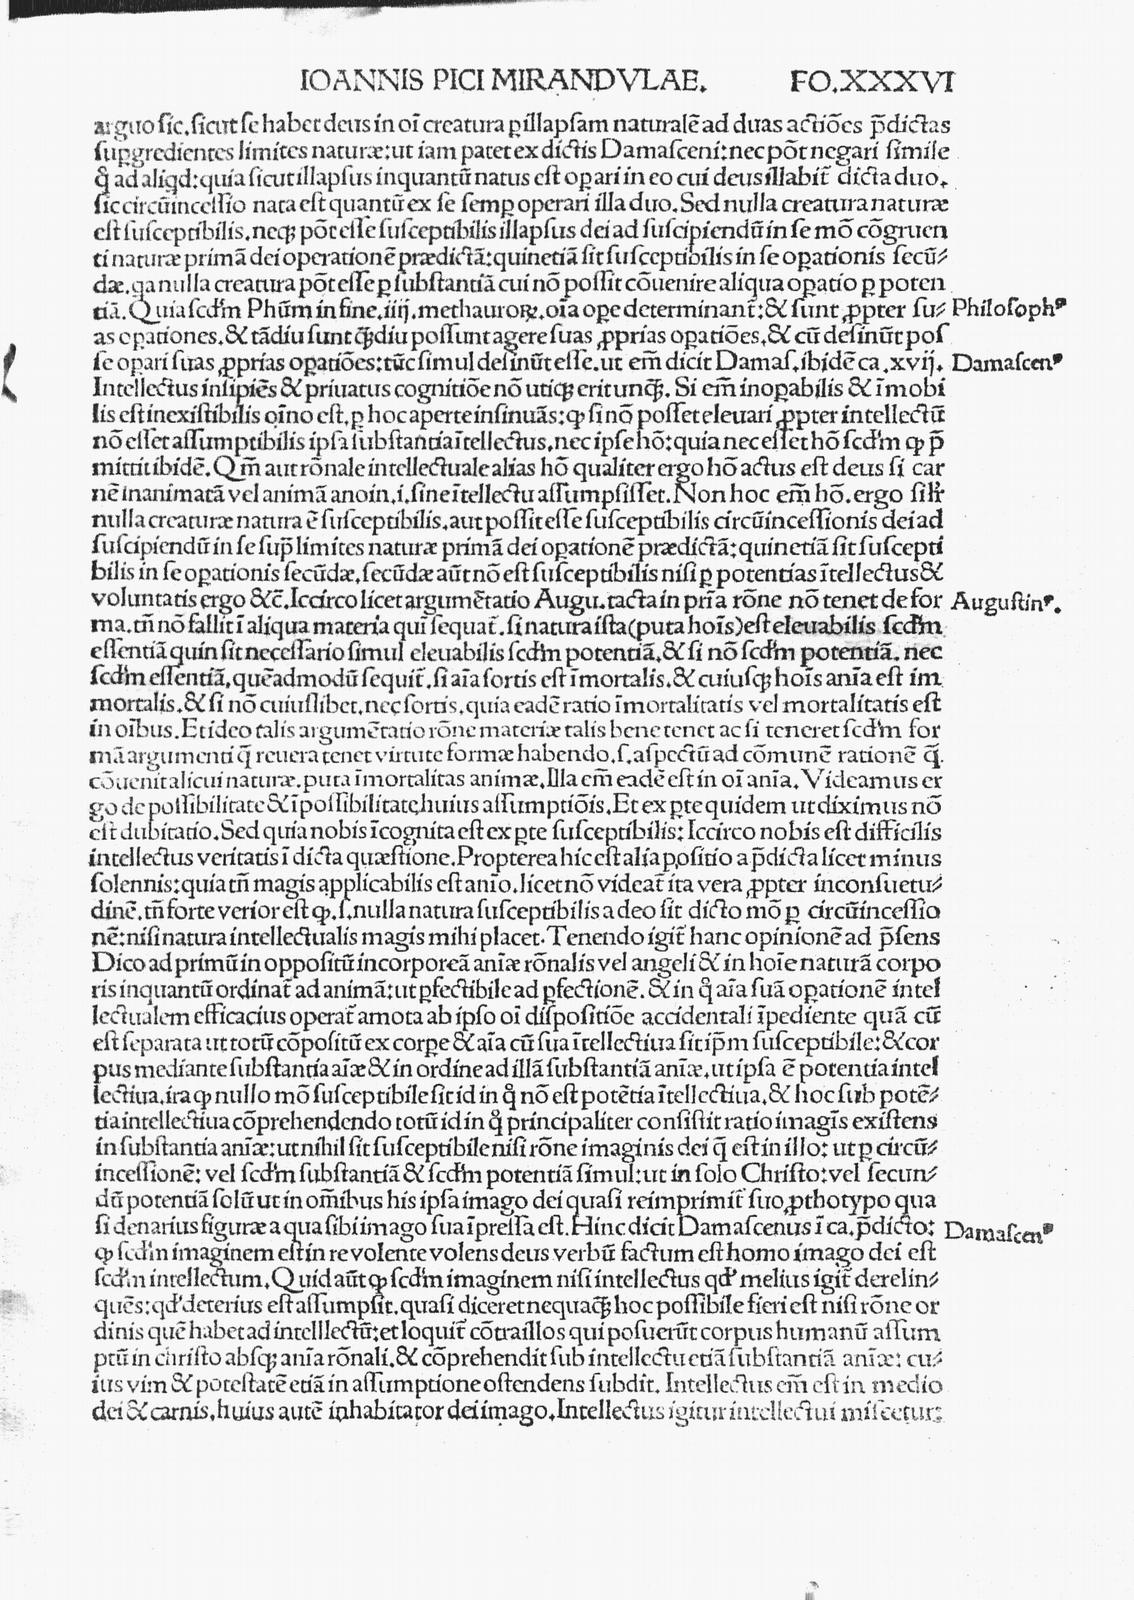 IOANNIS PICI MIRANDVLAE. FO.XXXVI
arguo sic. sicut se habet deus in oī creatura ꝑ illapsam naturalē ad duas actiōes p̄dictas
supgredientes limites naturæ: ut iam patet ex dictis Damasceni: nec pōt negari simile
ꝙ̊ ad aliqd: quia sicut illapsus inquantū natus est opari in eo cui deus illabit̄ dicta duo.
sic circūincessio nata est quantū ex se semp operari illa duo. Sed nulla creatura naturæ
est susceptibilis. neqꝫ pōt esse susceptibilis illapsus dei ad suscipiendū in se mō cōgruen
ti naturæ primā dei operationē prædictā: quinetiā sit susceptibilis in se opationis secū⸗
dæ. qa nulla creatura pōt esse ꝑ substantiā cui nō possit cōuenire aliqua opatio ꝑ poten
tiā. Quia scd̄m Phūm in fine. iiij. methauroꝝ. oīa ope determinant̄: & sunt ꝓpter su⸗ Philosophꝰ
as opationes. & tādiu sunt qꝫdiu possunt agere suas ꝓprias opatiōes. & cū desinūt pos
se opari suas ꝓprias opatiōes: tūc simul desinūt esse. ut em̄ dicit Damas. ibidē ca. xvij. Damascenꝰ
Intellectus insipiēs & priuatus cognitiōe nō utiqꝫ erit unqꝫ. Si em̄ inopabilis & īmobi
lis est inexistibilis oīno est. ꝑ hoc aperte insinuās: ꝙ si nō posset eleuari ꝓpter intellectū
nō esset assumptibilis ipsa substantia ītellectus. nec ipse hō: quia nec esset hō scd̄m ꝙ p̄
mittit ibidē. Qm̄ aut rōnale intellectuale alias hō qualiter ergo hō actus est deus si car
nē inanimatā vel animā anoin. i. sine ītellectu assumpsisset. Non hoc em̄ hō. ergo silr̄
nulla creaturæ natura ē susceptibilis. aut possit esse susceptibilis circūincessionis dei ad
suscipiendū in se sup̄ limites naturæ primā dei opationē prædictā: quinetiā sit suscepti
bilis in se opationis secūdæ. secūdæ aūt nō est susceptibilis nisi ꝑ potentias ītellectus &
voluntatis ergo &c̄. Iccirco licet argumētatio Augu. tacta in pria rōne nō tenet de for Augustinꝰ.
ma. tn̄ nō fallit ī aliqua materia qui sequat̄. si natura ista (puta hoīs) est eleuabilis scd̄m
essentiā quin sit necessario simul eleuabilis scd̄m potentiā. & si nō scd̄m potentiā. nec
scd̄m essentiā. quēadmodū sequit̄. si aīa sortis est īmortalis. & cuiusqꝫ hoīs anīa est im
mortalis. & si nō cuiuslibet. nec sortis. quia eadē ratio īmortalitatis vel mortalitatis est
in oībus. Et ideo talis argumētatio rōne materiæ talis bene tenet ac si teneret scd̄m for
mā argumenti q̄ reuera tenet virtute formæ habendo. s. aspectū ad cōmunē rationē q̄
cōuenit alicui naturæ. puta īmortalitas animæ. Illa em̄ eadē est in oī anīa. Videamus er
go de possibilitate & īpossibilitate huius assumptiōis. Et ex pte quidem ut diximus nō
est dubitatio. Sed quia nobis īcognita est ex pte susceptibilis: Iccirco nobis est difficilis
intellectus veritatis ī dicta quæstione. Propterea hic est alia positio a p̄dicta licet minus
solennis: quia tn̄ magis applicabilis est anīo. licet nō videat̄ ita vera ꝓpter inconsuetu⸗
dinē. tn̄ forte verior est ꝙ. s. nulla natura susceptibilis a deo sit dicto mō ꝑ circūincessio
nē: nisi natura intellectualis magis mihi placet. Tenendo igit̄ hanc opinionē ad p̄sens
Dico ad primū in oppositū incorporeā anīæ rōnalis vel angeli & in hoīe naturā corpo
ris inquantū ordinat̄ ad animā: ut pfectibile ad pfectionē. & in q̊ aīa suā opationē intel
lectualem efficacius operat̄ amota ab ipso oī dispositiōe accidentali īpediente quā cū
est separata ut totū cōpositū ex corpe & aīa cū sua ītellectiua sit ip̄m susceptibile: & cor
pus mediante substantia aīæ & in ordine ad illā substantiā anīæ. ut ipsa ē potentia intel
lectiua. ita ꝙ nullo mō susceptibile sit id in q̊ nō est potētia ītellectiua. & hoc sub potē⸗
tia intellectiua cōprehendendo totū id in q̊ principaliter consistit ratio imagīs existens
in substantia anīæ: ut nihil sit susceptibile nisi rōne imaginis dei q̄ est in illo: ut ꝑ circū⸗
incessionē: vel scd̄m substantiā & scd̄m potentiā simul: ut in solo Christo: vel secun⸗
dū potentiā solū ut in om̄ibus his ipsa imago dei quasi reimprimit̄ suo ꝓthotypo qua
si denarius figuræ a qua sibi imago sua īpressa est. Hinc dicit Damascenus ī ca. p̄dicto: Damascenꝰ
ꝙ scd̄m imaginem est in re volente volens deus verbū factum est homo imago dei est
scd̄m intellectum. Quid aūt ꝙ scd̄m imaginem nisi intellectus qd̄ melius igit̄ derelin⸗
quēs: qd̄ deterius est assumpsit. quasi diceret nequaqꝫ hoc possibile fieri est nisi rōne or
dinis quē habet ad intelllectū: et loquit̄ cōtra illos qui posuerūt corpus humanū assum
ptū in christo absqꝫ anīa rōnali. & cōprehendit sub intellectu etiā substantiā anīæ: cu⸗
ius vim & potestatē etiā in assumptione ostendens subdit. Intellectus em̄ est in medio
dei & carnis. huius autē inhabitator dei imago. Intellectus igitur intellectui miscetur: